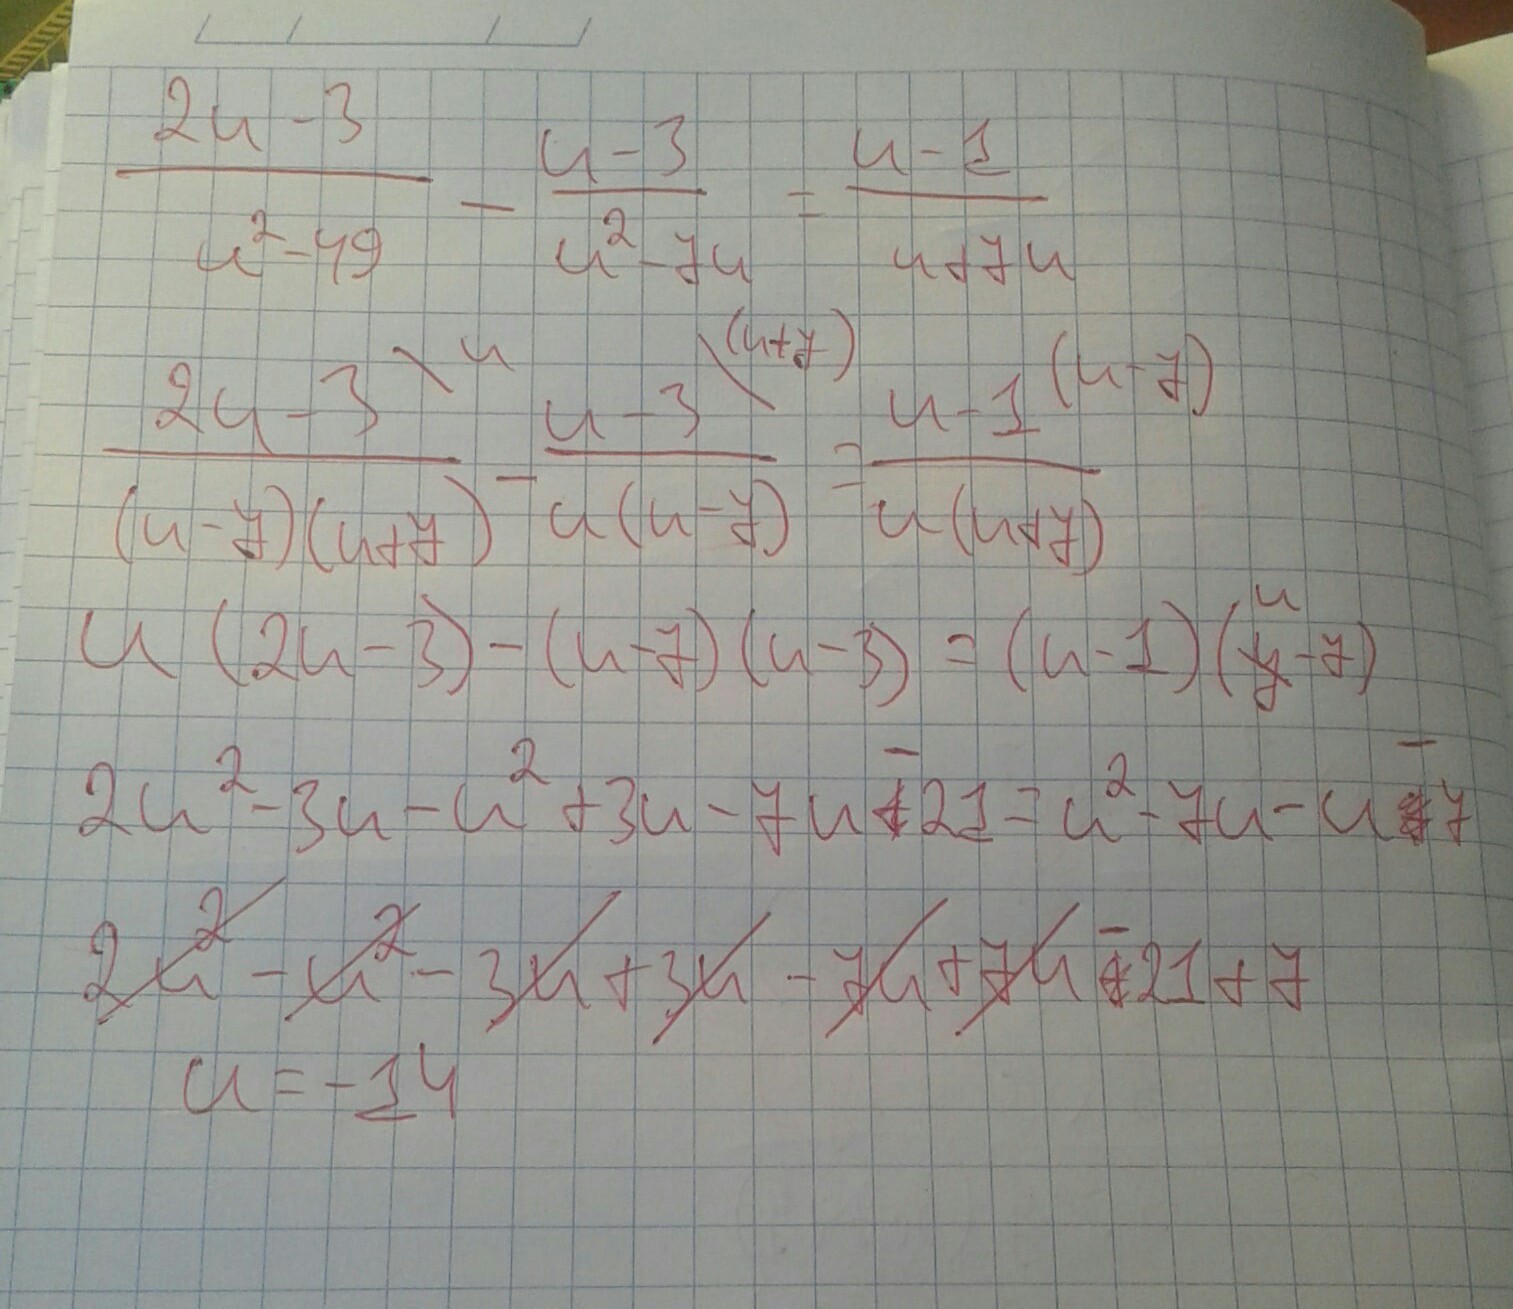 (2u - 3)/(u² - 49) - (u - 3)/(u² - 7u) = (u - 1)/(u + 7u)
(2u - 3)\u/((u - 7)(u + 7)) - (u - 3)\(u+7)/(u(u - 7)) = (u - 1)(u - 7)/(u(u + 7))
u(2u - 3) - (u - 7)(u - 3) = (u - 1)(u - 7)
2u² - 3u - u² + 3u - 7u - 21 = u² - 7u - u - 7
2u² - u² - 3u + 3u - 7u + 7u - 21 + 7
u = -14